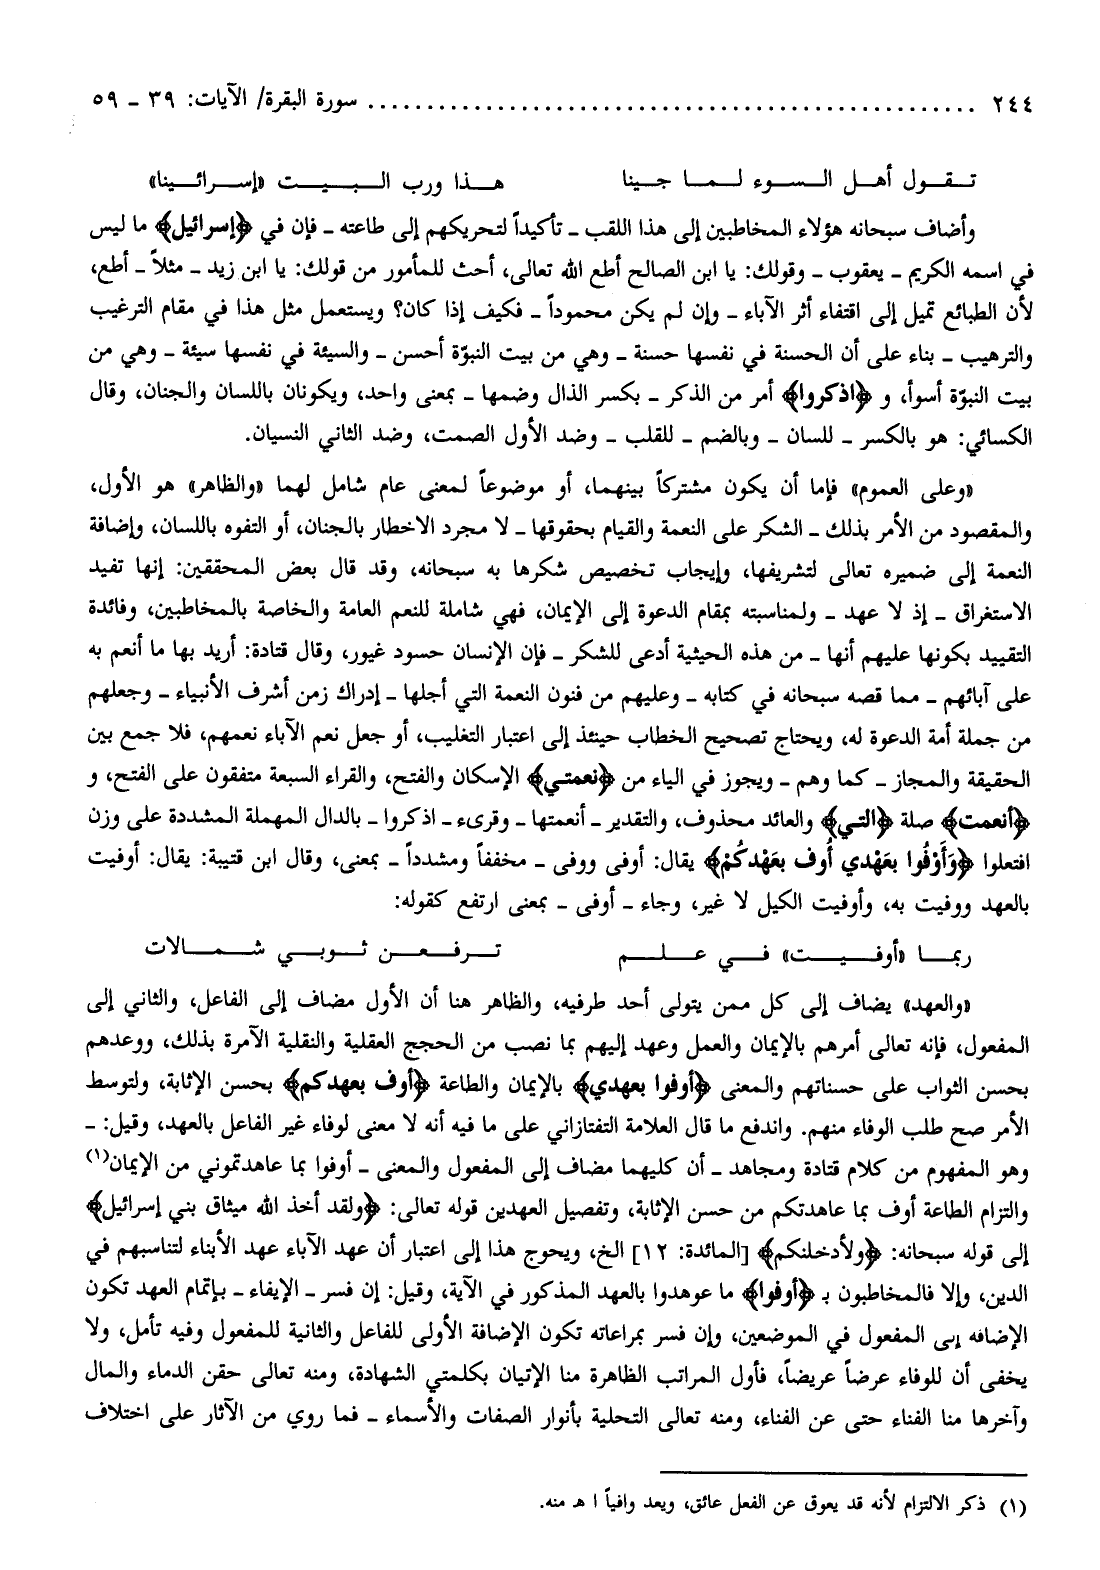 ٢٤٤ ..................................................... سورة البقرة/ الآيات: ٣٩ ـ ٥٩
تـقـول أهـل الـسـوء لـمـا جـيـنا هـذا ورب الـبـيـت «إسـرائـيـنا»
وأضاف سبحانه هؤلاء المخاطبين إلى هذا اللقب ـ تأكيداً لتحريكهم إلى طاعته ـ فإن في ﴿إسرائيل﴾ ما ليس
في اسمه الكريم ـ يعقوب ـ وقولك: يا ابن الصالح أطع الله تعالى، أحث للمأمور من قولك: يا ابن زيد ـ مثلاً ـ أطع،
لأن الطبائع تميل إلى اقتفاء أثر الآباء ـ وإن لم يكن محموداً ـ فكيف إذا كان؟ ويستعمل مثل هذا في مقام الترغيب
والترهيب ـ بناء على أن الحسنة في نفسها حسنة ـ وهي من بيت النبوّة أحسن ـ والسيئة في نفسها سيئة ـ وهي من
بيت النبوّة أسوأ، و ﴿اذكروا﴾ أمر من الذكر ـ بكسر الذال وضمها ـ بمعنى واحد، ويكونان باللسان والجنان، وقال
الكسائي: هو بالكسر ـ للسان ـ وبالضم ـ للقلب ـ وضد الأول الصمت، وضد الثاني النسيان.
«وعلى العموم» فإما أن يكون مشتركاً بينهما، أو موضوعاً لمعنى عام شامل لهما «والظاهر» هو الأول،
والمقصود من الأمر بذلك ـ الشكر على النعمة والقيام بحقوقها ـ لا مجرد الاخطار بالجنان، أو التفوه باللسان، وإضافة
النعمة إلى ضميره تعالى لتشريفها، وإيجاب تخصيص شكرها به سبحانه، وقد قال بعض المحققين: إنها تفيد
الاستغراق ـ إذ لا عهد ـ ولمناسبته بمقام الدعوة إلى الإيمان، فهي شاملة للنعم العامة والخاصة بالمخاطبين، وفائدة
التقييد بكونها عليهم أنها ـ من هذه الحيثية أدعى للشكر ـ فإن الإنسان حسود غيور، وقال قتادة: أريد بها ما أنعم به
على آبائهم ـ مما قصه سبحانه في كتابه ـ وعليهم من فنون النعمة التي أجلها ـ إدراك زمن أشرف الأنبياء ـ وجعلهم
من جملة أمة الدعوة له، ويحتاج تصحيح الخطاب حينئذ إلى اعتبار التغليب، أو جعل نعم الآباء نعمهم، فلا جمع بين
الحقيقة والمجاز ـ كما وهم ـ ويجوز في الياء من ﴿نعمتي﴾ الإسكان والفتح، والقراء السبعة متفقون على الفتح، و
﴿أنعمت﴾ صلة ﴿التي﴾ والعائد محذوف، والتقدير ـ أنعمتها ـ وقرىء ـ اذكروا ـ بالدال المهملة المشددة على وزن
افتعلوا ﴿وَأَوْفُوا بعَهْدي أُوف بعَهْدكُمْ﴾ يقال: أوفى ووفى ـ مخففاً ومشدداً ـ بمعنى، وقال ابن قتيبة: يقال: أوفيت
بالعهد ووفيت به، وأوفيت الكيل لا غير، وجاء ـ أوفى ـ بمعنى ارتفع كقوله:
ربمـا «أوفـيـت» فـي عـلـم تـرفـعـن ثـوبـي شـمـالات
«والعهد» يضاف إلى كل ممن يتولى أحد طرفيه، والظاهر هنا أن الأول مضاف إلى الفاعل، والثاني إلى
المفعول، فإنه تعالى أمرهم بالإيمان والعمل وعهد إليهم بما نصب من الحجج العقلية والنقلية الآمرة بذلك، ووعدهم
بحسن الثواب على حسناتهم والمعنى ﴿أوفوا بعهدي﴾ بالإيمان والطاعة ﴿أوف بعهدكم﴾ بحسن الإثابة، ولتوسط
الأمر صح طلب الوفاء منهم. واندفع ما قال العلامة التفتازاني على ما فيه أنه لا معنى لوفاء غير الفاعل بالعهد، وقيل: ـ
وهو المفهوم من كلام قتادة ومجاهد ـ أن كليهما مضاف إلى المفعول والمعنى ـ أوفوا بما عاهدتموني من الإيمان(١)
والتزام الطاعة أوف بما عاهدتكم من حسن الإثابة، وتفصيل العهدين قوله تعالى: ﴿ولقد أخذ الله ميثاق بني إسرائيل﴾
إلى قوله سبحانه: ﴿ولأدخلنكم﴾ [المائدة: ١٢] الخ، ويحوج هذا إلى اعتبار أن عهد الآباء عهد الأبناء لتناسبهم في
الدين، وإلا فالمخاطبون بـ ﴿أوفوا﴾ ما عوهدوا بالعهد المذكور في الآية، وقيل: إن فسر ـ الإيفاء ـ بإتمام العهد تكون
الإضافه إلى المفعول في الموضعين، وإن فسر بمراعاته تكون الإضافة الأولى للفاعل والثانية للمفعول وفيه تأمل، ولا
يخفى أن للوفاء عرضاً عريضاً، فأول المراتب الظاهرة منا الإتيان بكلمتي الشهادة، ومنه تعالى حقن الدماء والمال
وآخرها منا الفناء حتى عن الفناء، ومنه تعالى التحلية بأنوار الصفات والأسماء ـ فما روي من الآثار على اختلاف
(١) ذكر الالتزام لأنه قد يعوق عن الفعل عائق، ويعد وافياً ا هـ منه.